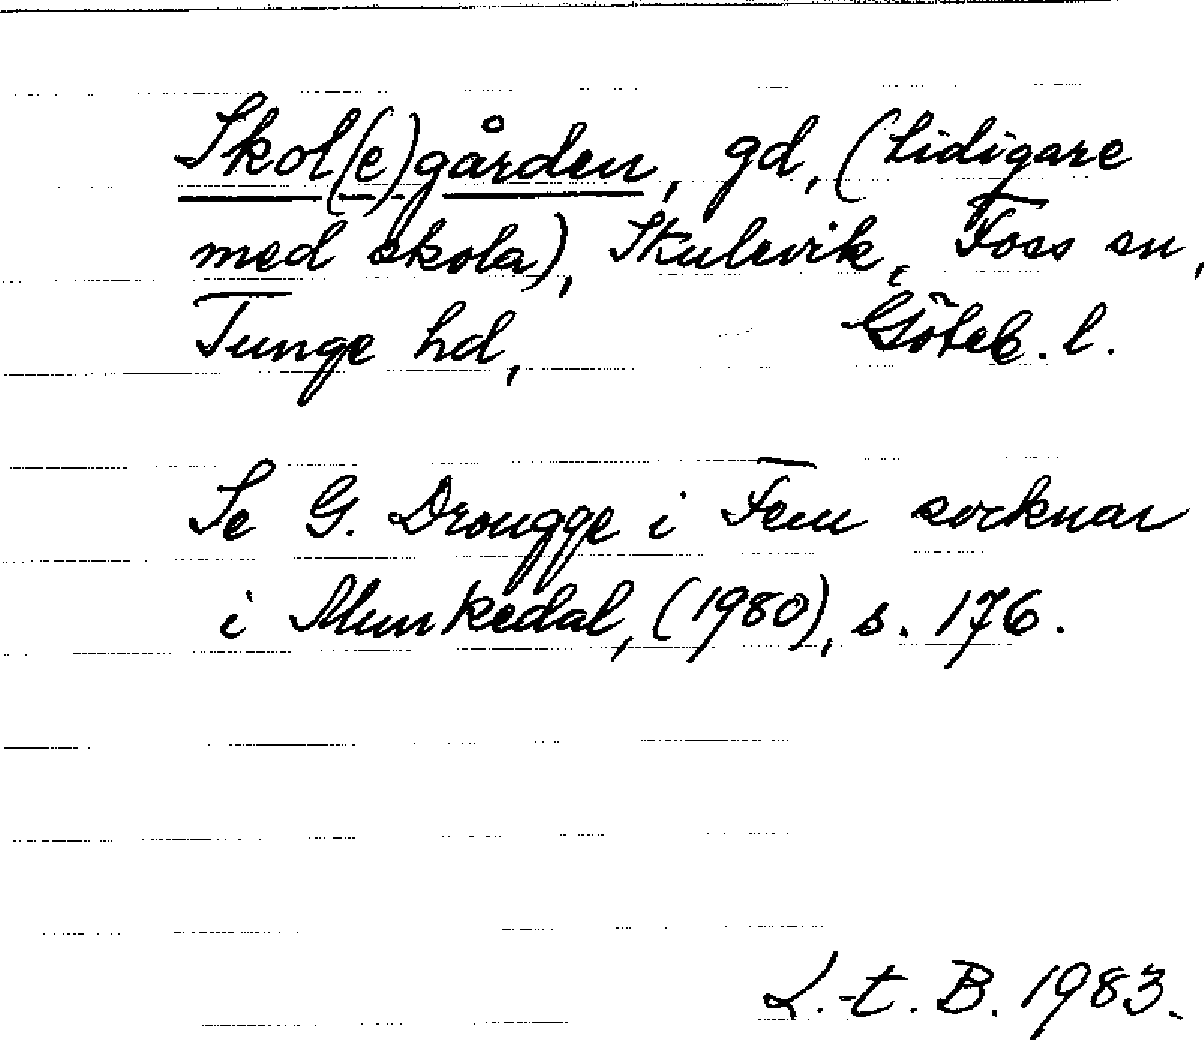 Skol(e)gården, gd, (tidigare
med skola), Skulevik, Foss sn,
Tunge hd, Göteb. l.
Se G. Drougge i Fem socknar
i Munkedal, (1980), s. 176.
L.-t. B. 1983.